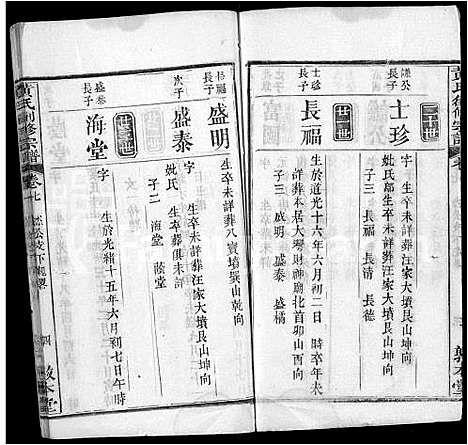 謙公長子
二十世
士珍
字 生卒未詳葬汪家大墳艮山坤向
妣氏 生卒葬未詳
子三 長福 長清 長德
士珍長子
廿一世
長福
生於道光十六年六月初二日 時卒年未
詳葬本居大塆財神廟北首卯山酉向
子三 盛明 盛泰 盛橘
長福長子
盛明
生卒未詳葬八寶墳巽山乾向
次子
盛泰
字 生卒未詳葬汪家大墳艮山坤向
妣氏 生卒葬俱未詳
子二 海堂 蔭堂
盛泰長子
廿三世
海堂
字
生於光緒十五年六月初七日午時
黃氏創修宗譜
卷七
四
敦本堂